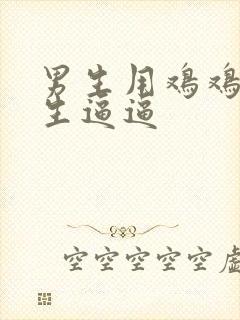 男生用鸡鸡
生逼逼
空空空空空虚